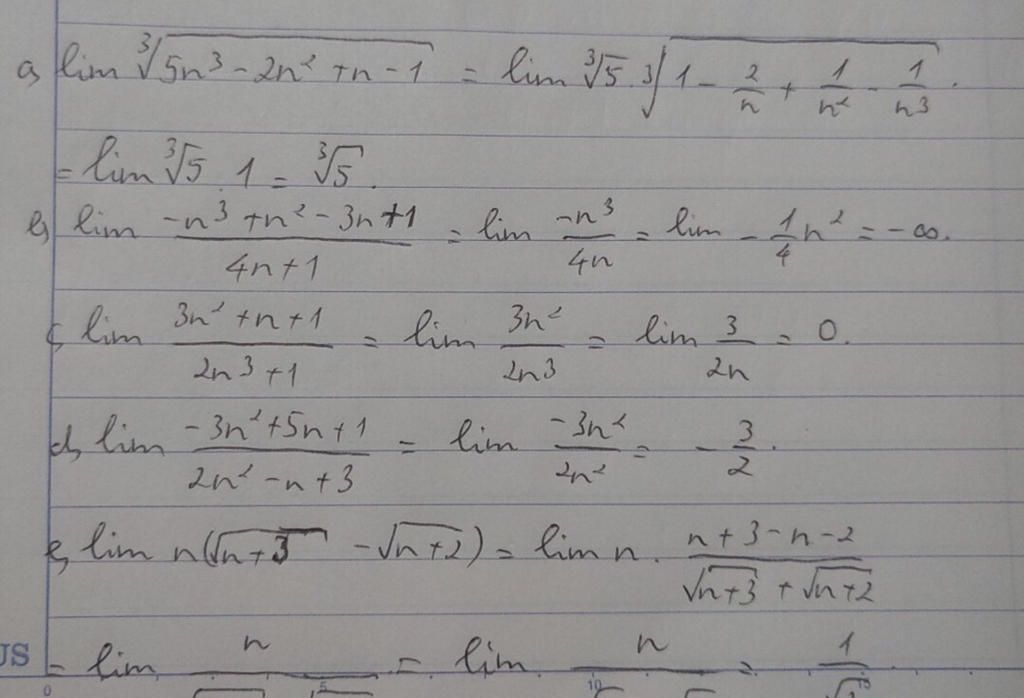 a, lim ∛(5n³ - 2n² + n - 1) = lim ∛5 . ∛(1 - 2/n + 1/n² - 1/n³) .
= lim ∛5 . 1 = ∛5 .
b, lim (-n³ + n² - 3n + 1)/(4n + 1) = lim (-n³)/(4n) = lim - 1/4 n² = -∞.
c, lim (3n² + n + 1)/(2n³ + 1) = lim (3n²)/(2n³) = lim 3/(2n) = 0.
d, lim (-3n² + 5n + 1)/(2n² - n + 3) = lim (-3n²)/(2n²) = - 3/2 .
e, lim n(√(n+3) - √(n+2)) = lim n . (n + 3 - n - 2)/(√(n+3) + √(n+2))
JS
= lim n = lim n = 1
0 5 10 15